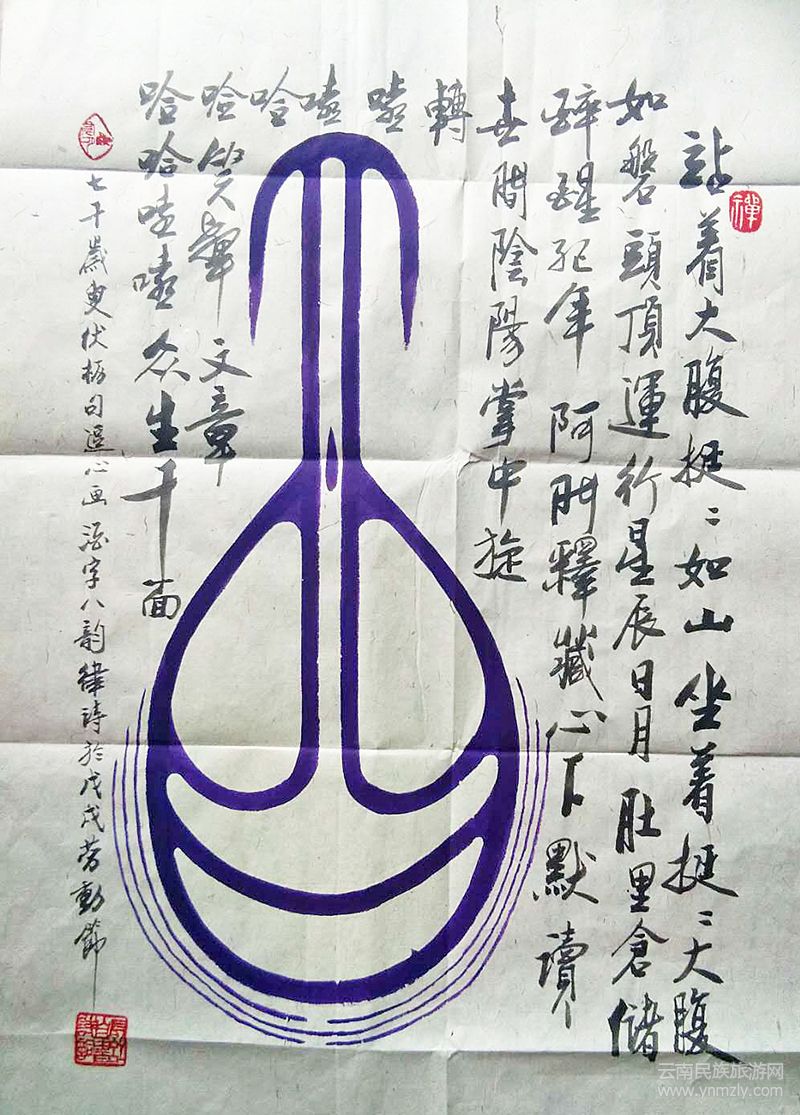 站着大腹挺〻如山坐着挺〻大腹
禪
如磐頭頂運行星辰日月肚里倉儲
醉醒紀年阿釋藏心下默讀
世間陰陽掌中旋
轉
嘻
嘻
哈
哈笑彙文章
哈哈嘻嘻众生千面
七十歲叟伏枥句逗心画 酒字八韵律诗於戊戌劳動節
云南民族旅游网
www.ynmzly.com